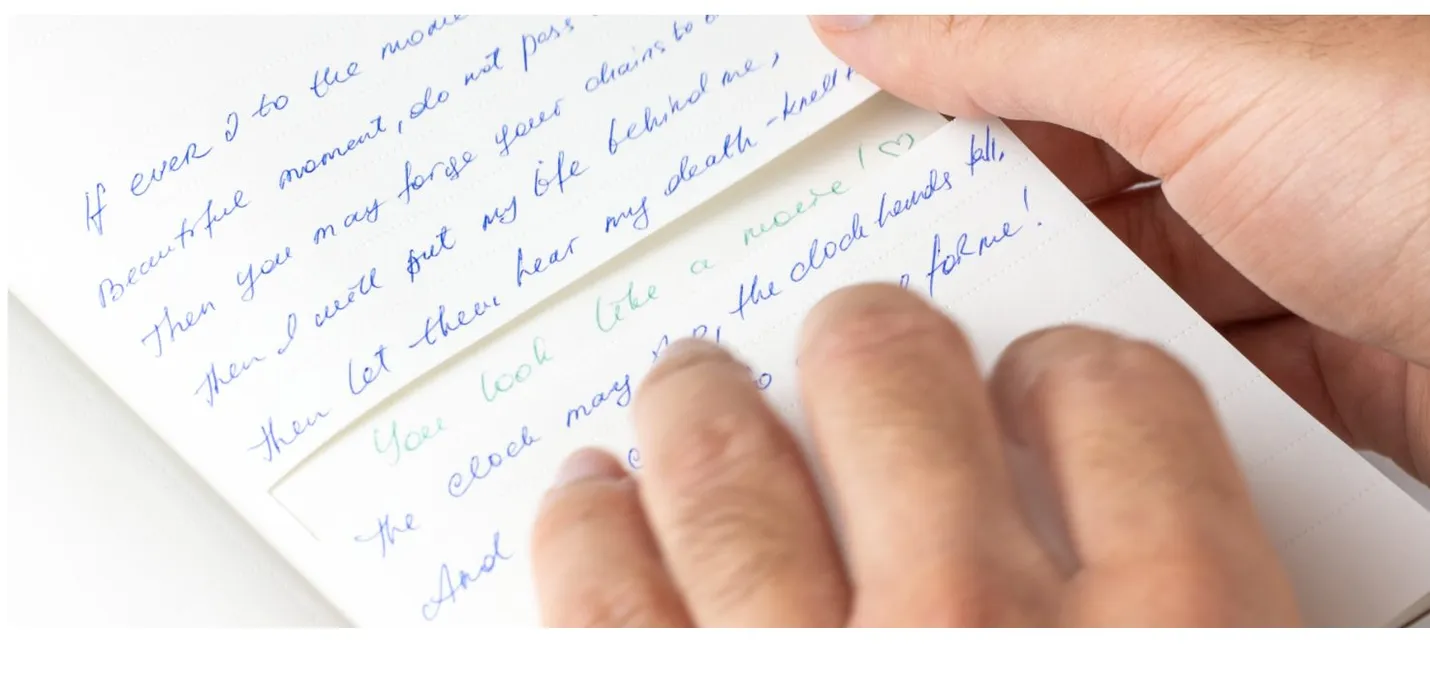 If ever I to the
Beautiful moment, do not pass
Then you may forge your chains to
Then I will put my life behind me,
Then let them hear my death-knell
You look like a movie! ♡
The clock may the clock hands fall,
And for me!